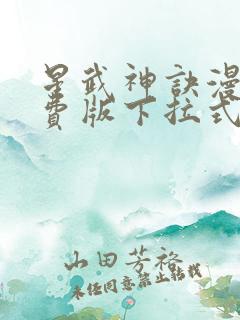 星武神訣漫
費版下拉式
山田芳裕
未经同意禁止转载